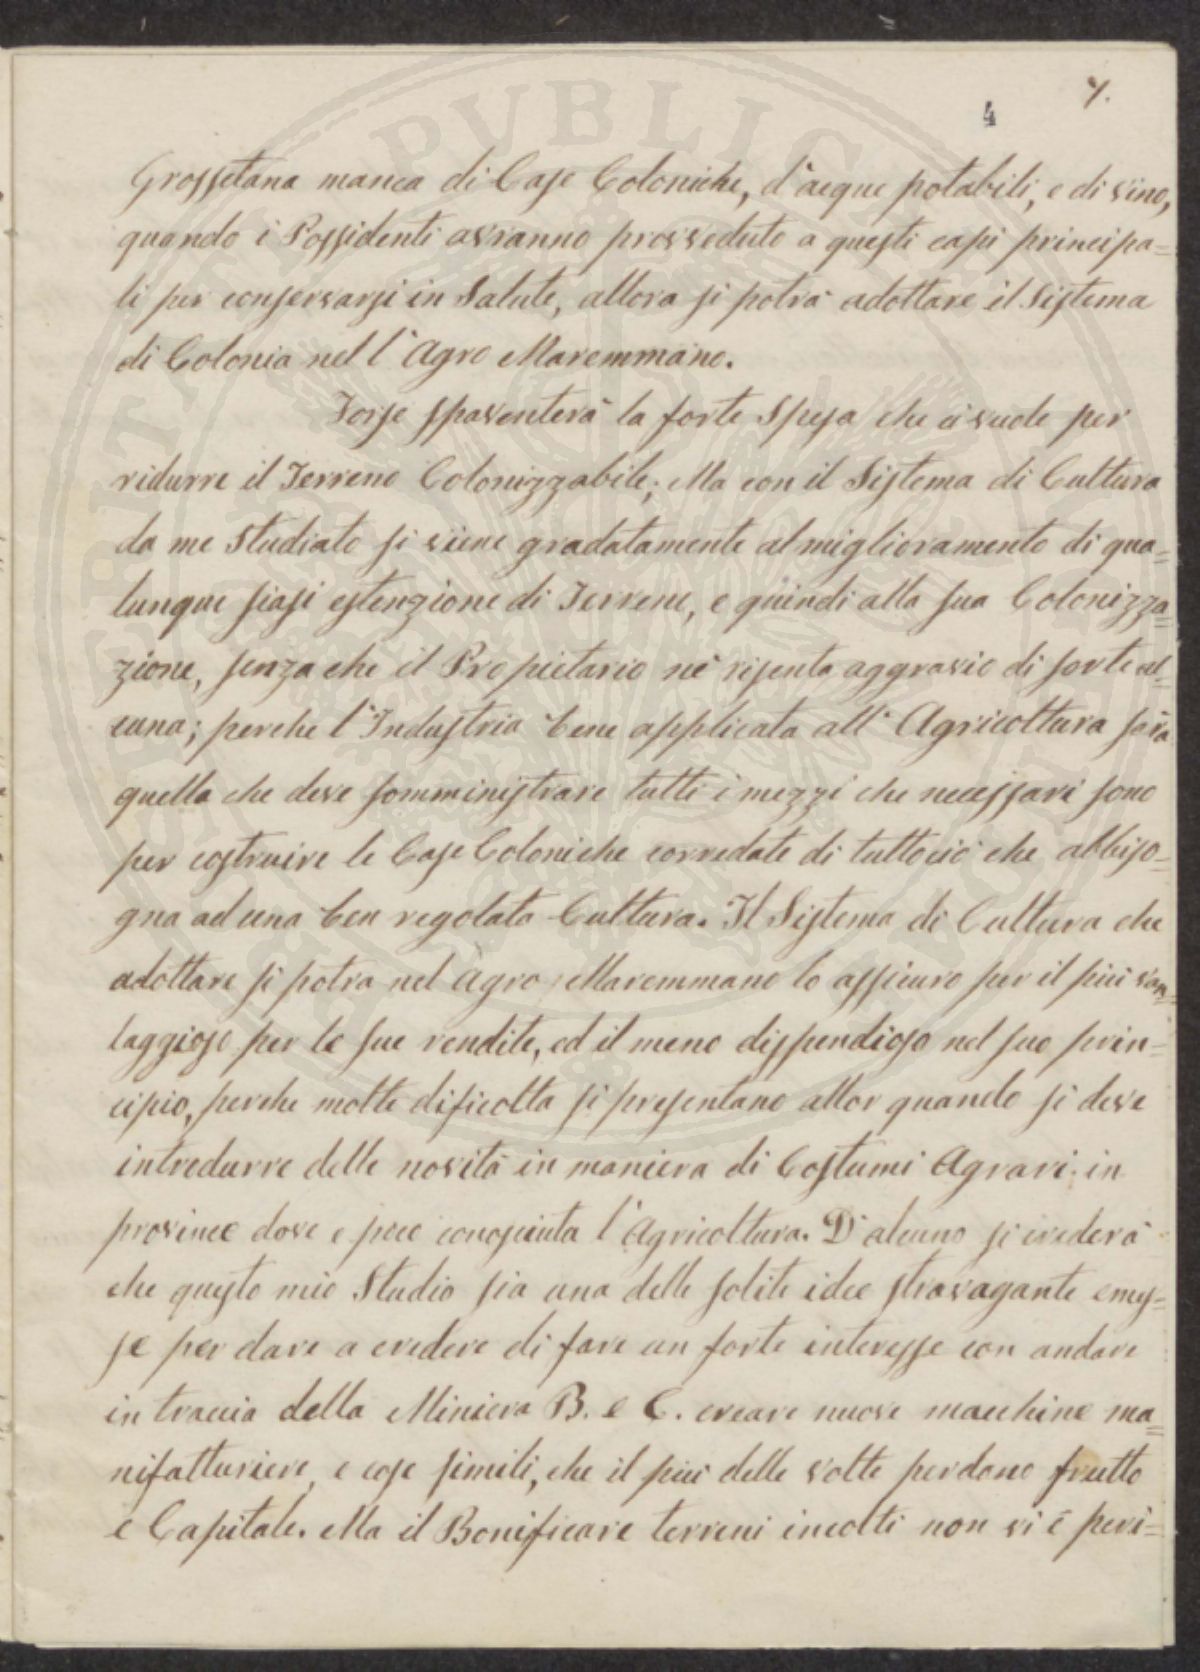 PUBLICAE UTILITATI SPIRITUS
4
7.
Grossetana manca di Case Coloniche, d'acque potabili, e di vino,
quando i Possidenti avranno provveduto a questi capi principa=
li per conservarsi in Salute, allora si potrà adottare il Sistema
di Colonia nell'Agro Maremmano.
Forse spaventerà la forte Spesa che ci vuole per
ridurre il Terreno Colonizzabile; Ma con il Sistema di Cultura
da me Studiato si viene gradatamente al miglioramento di qua=
lunque siasi estenzione di Terreni, e quindi alla sua Colonizza=
zione, senza che il Propietario nè risenta aggravio di sorte al=
cuna; perche l'Industria bene applicata all'Agricoltura sarà
quella che deve somministrare tutti i mezzi che necessari sono
per costruire le Case Coloniche corredate di tuttociò che abbiso=
gna ad una ben regolata Cultura. Il Sistema di Cultura che
adottare si potra nel Agro Maremmano lo assicuro per il più van=
taggioso per le sue rendite, ed il meno dispendioso nel suo prin=
cipio, perche molte dificolta si presentano allor quando si deve
introdurre delle novità in maniera di Costumi Agrari in
provincie dove e poco conosciuta l'Agricoltura. D'alcuno si crederà
che questo mio Studio sia una delle solite idee stravagante emes=
se per dare a credere di fare un forte interesse con andare
in traccia della Miniera B. e C. creare nuove macchine ma=
nifatturiere, e cose simili, che il più delle volte perdono frutto
e Capitale. Ma il Bonificare terreni incolti non vi è peri=